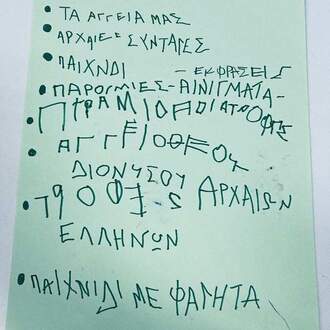 • ΤΑ ΑΓΓΕΙΑ ΜΑΣ
• ΑΡΧΑΙΕΣ ΣΥΝΤΑΓΕΣ
• ΠΑΙΧΝΙΔΙ
• ΠΑΡΟΙΜΙΕΣ-ΑΙΝΙΓΜΑΤΑ - ΕΚΦΡΑΣΕΙΣ
• ΠΥΡΑΜΙΔΑ ΔΙΑΤΡΟΦΗΣ
• ΑΓΓΕΙΟ ΘΕΟΥ
ΔΙΟΝΥΣΟΥ
• ΤΡΟΦΕΣ ΑΡΧΑΙΩΝ
ΕΛΛΗΝΩΝ
• ΠΑΙΧΝΙΔΙ ΜΕ ΦΑΓΗΤΑ